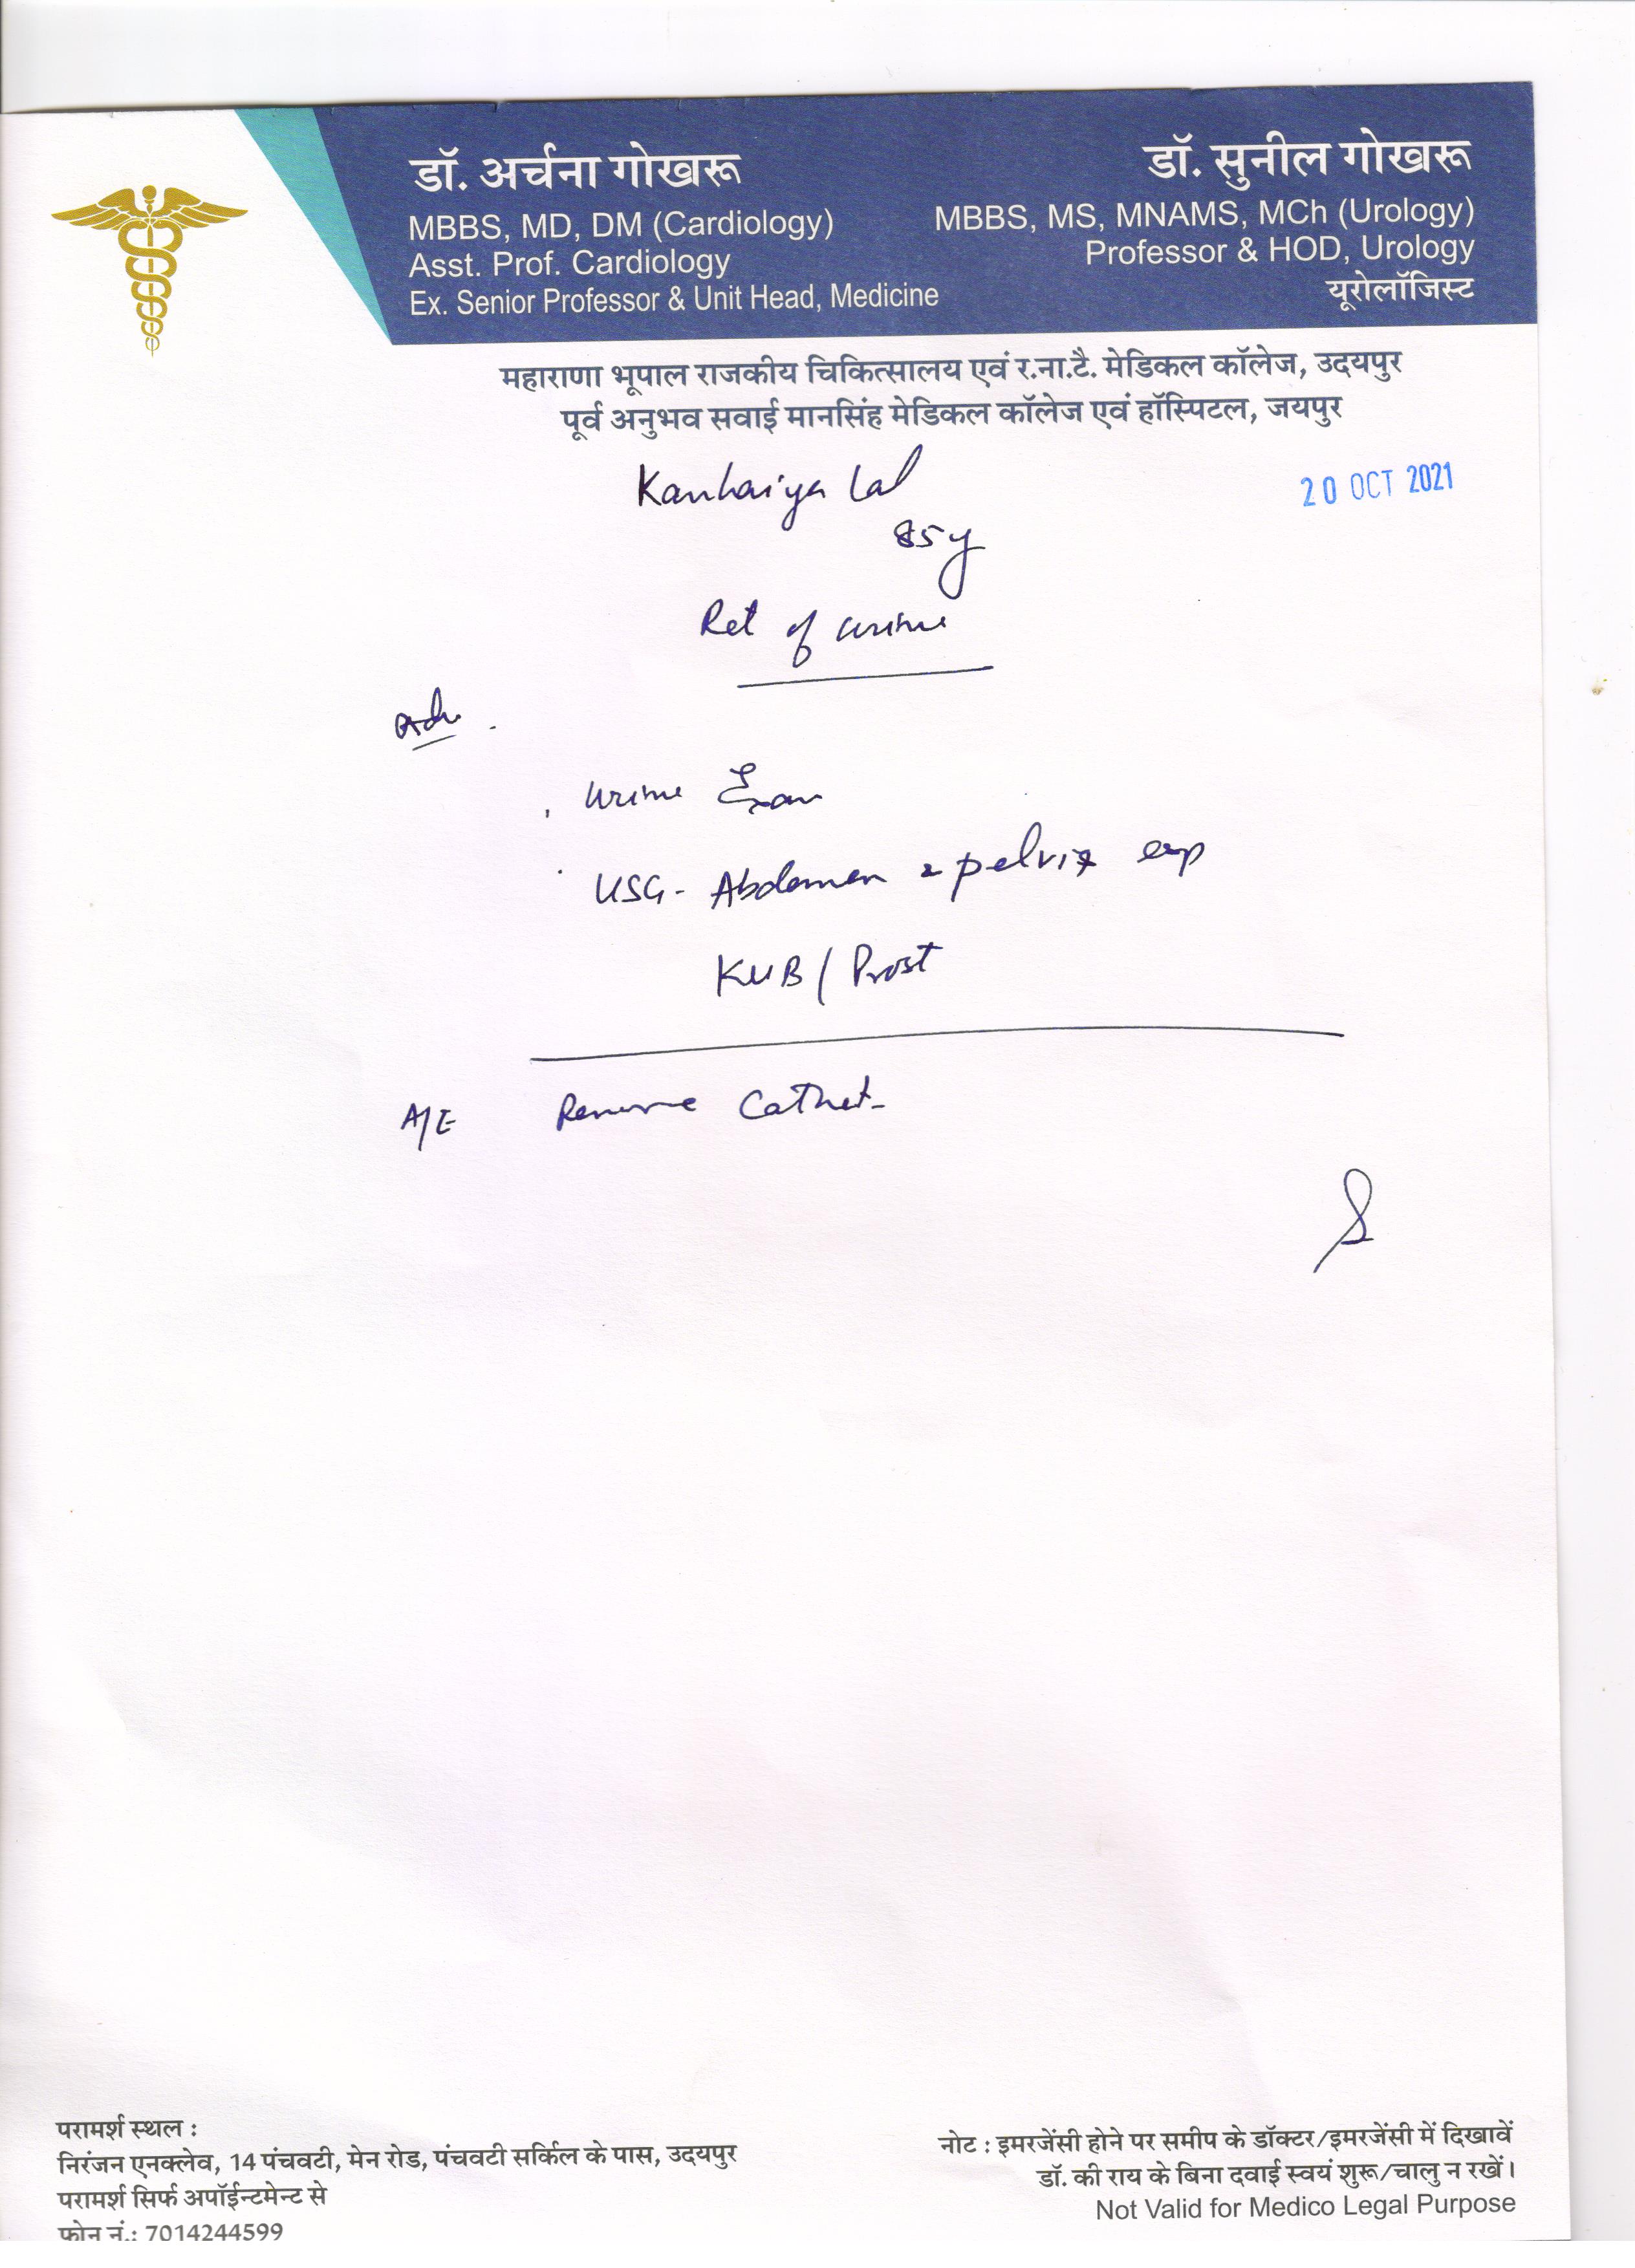 डॉ. अर्चना गोखरू
MBBS, MD, DM (Cardiology)
Asst. Prof. Cardiology
Ex. Senior Professor & Unit Head, Medicine
डॉ. सुनील गोखरू
MBBS, MS, MNAMS, MCh (Urology)
Professor & HOD, Urology
यूरोलॉजिस्ट
महाराणा भूपाल राजकीय चिकित्सालय एवं र.ना.टै. मेडिकल कॉलेज, उदयपुर
पूर्व अनुभव सवाई मानसिंह मेडिकल कॉलेज एवं हॉस्पिटल, जयपुर
Kanhaiya Lal
20 OCT 2021
85y
Ret of urine
Adv.
Urine Exam
USG - Abdomen & pelvis esp
KUB / Prost
A/E
परामर्श स्थल :
निरंजन एनक्लेव, 14 पंचवटी, मेन रोड, पंचवटी सर्किल के पास, उदयपुर
परामर्श सिर्फ अपॉईन्टमेन्ट से
फोन नं.: 7014244599
नोट : इमरजेंसी होने पर समीप के डॉक्टर/इमरजेंसी में दिखावें
डॉ. की राय के बिना दवाई स्वयं शुरू/चालु न रखें।
Not Valid for Medico Legal Purpose